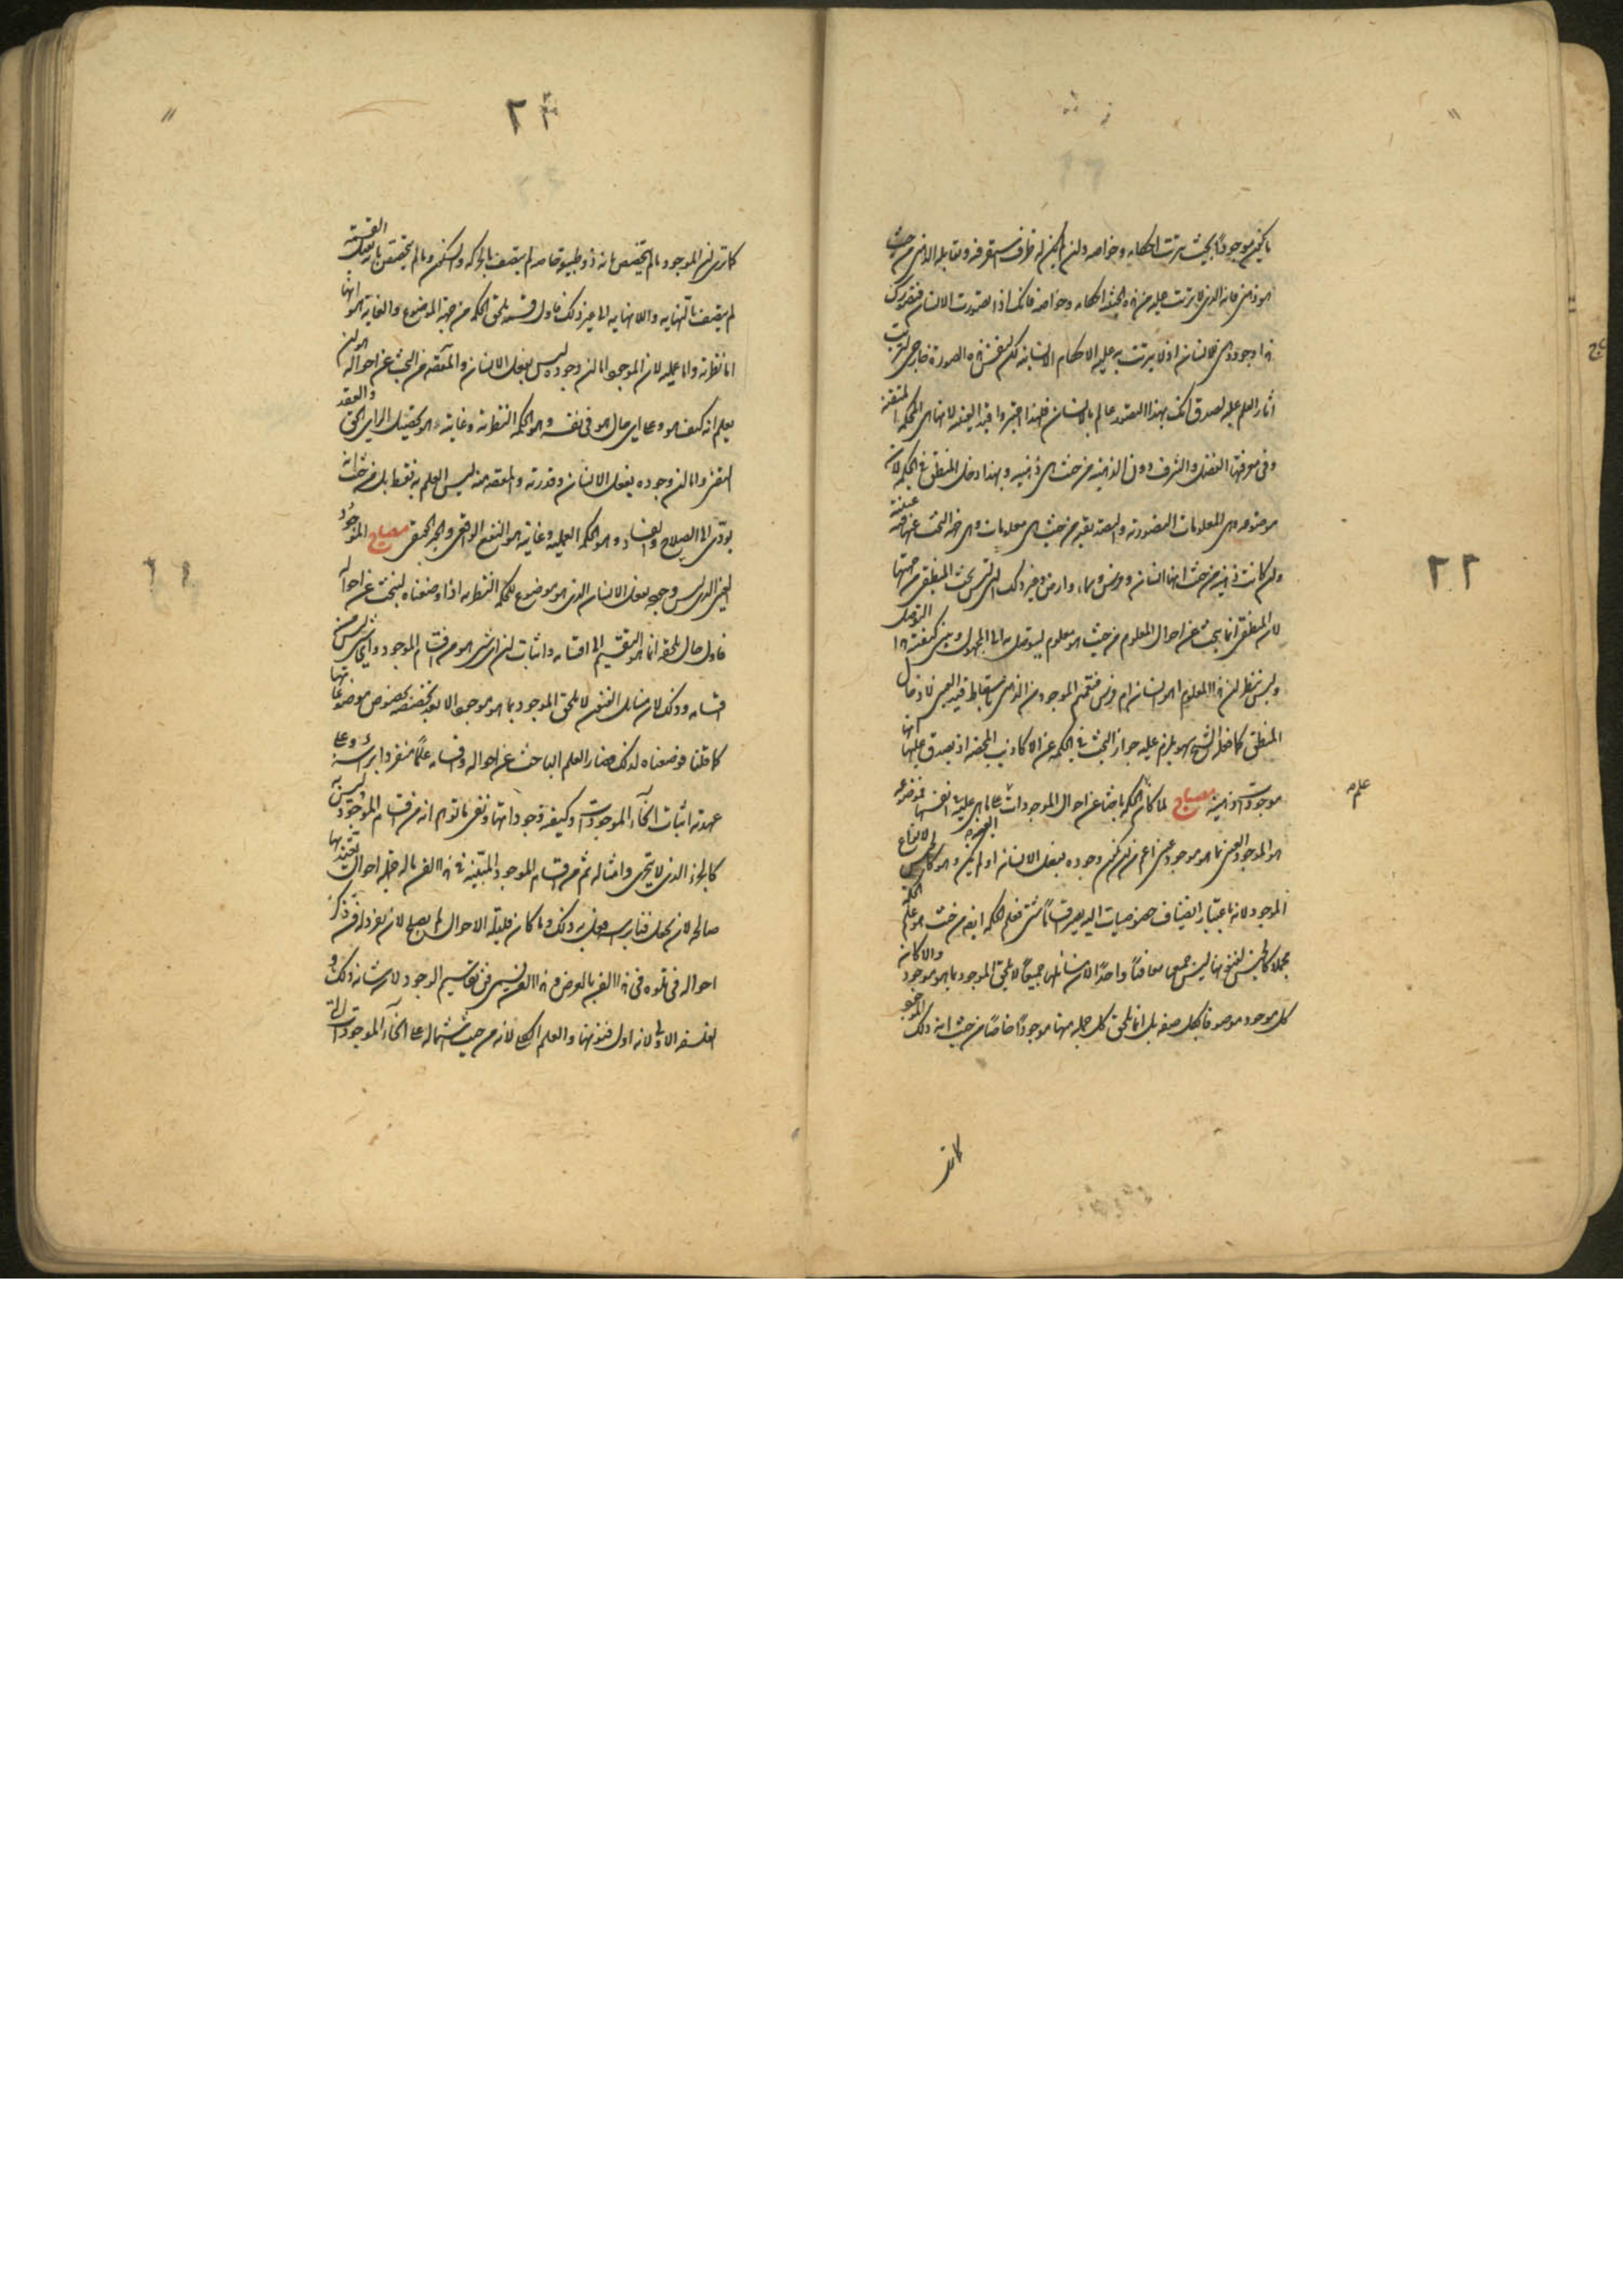 ما يكون موجودا بحيث يترتب احكامه وخواصه وان لم يكن له ظرف يستقر فيه ويقابله الذهنى من حيث
هو ذهنى فانه الذى لا يترتب عليه من هذه الحيثية احكامه وخواصه فانك اذا تصورت الانسان فتصورك
هذا وجود ذهنى للانسان اذ لا يترتب به عليه الاحكام الانسانية لكن نفس هذه الصورة خارجى لترتب
اثار العلم عليه لصدق انك بهذا التصور عالم بالانسان فلهذا اختير واقيد العينية لانها هى الحكمة المتقنة
وفى معرفتها الفضل والشرف دون الذهنية من حيث هى ذهنية وبهذا دخل المنطق فى الحكمة لان
موضوعه هى المعلومات التصورية والتصديقية من حيث هى معلومات وهى هذه البحث عنها فيه عينية
وان كانت ذهنية من حيث انها انسان وفرس وسماء وارض وغير ذلك التى ليس بحث المنطقى من جهتها
لان المنطقى انما يبحث عن احوال المعلوم من حيث هو معلوم ليتوصل به الى المجهول ويبين كيفية هذا التوصل
وليس ينظر ان هذا المعلوم اهو انسان ام فرس فتعميم الموجود من الذهنى باسقاط قيد العينى لادخال
المنطق كما فعله الشيخ سهو يلزم عليه جواز البحث فى الحكمة عن الاكاذيب المحضة اذ يصدق عليها انها
موجودات ذهنية مصباح لما كان الحكمة باحثا عن احوال الموجودات على ما هى عليه فى انفسها فموضوعه
علم
هو الموجود العينى بما هو موجود عينى اعم من ان يكون وجوده بفعل الانسان او لم يكن وهو كالجنس لانواع
الموجود لانه باعتبار انضياف خصوصيات اليه يصير اقساما شتى فعلم الحكمة ايضا من حيث هو علم الحكمة
مجملا كالجنس لفنونها ليس جميعها فنا واحدا لان مسائلها جميعا لا يلحق الموجود بما هو موجود والا كان
كل موجود موصوفا بكل صفة بل انما يلحق كل جملة منها موجودا خاصا من حيث انه ذلك الموجود
كما ترى
٢٢
كما ترى ان الموجود ما لم يتخصص بانه ذو طبيعة خاصة لم يتصف بالحركة والسكون وما لم يتخصص بانه يقبل القسمة
لم يتصف بالنهاية واللانهاية الى غير ذلك فاول قسمة يلحق الحكمة من جهة الموضوع والغاية هو انها
اما نظرية واما عملية لان الموجود اما ان وجوده ليس بفعل الانسان والمقصود من البحث عن احواله هو ان
يعلم انه كيف هو وعلى اى حال هو فى نفسه وهو الحكمة النظرية وغايته هو تحصيل الراى الحق والعقد
المتقن واما ان وجوده بفعل الانسان وقدرته والمقصود منه ليس العلم به فقط بل من حيث انه
يؤدى الى الصلاح والفساد وهو الحكمة العملية وغايته هو النفع الواقعى والخير الحقيقى مصباح الموجود
العينى الذى ليس وجوده بفعل الانسان الذى هو موضوع للحكمة النظرية اذا وضعناه لنبحث عن احواله
فاول حال يلحقه انما هو التقسيم الى اقسامه واثبات ان اى شىء هو من اقسام الموجود واى شىء ليس من
اقسامه وذلك لان مسائل الفنون لا يلحق الموجود بما هو موجود الا بعد تخصصه بخصوص موضوعاتها
كما قلنا فوضعناه لذلك فصار العلم الباحث عن احواله واقسامه علما منفردا براسه وعلى
عهدته اثبات انحاء الموجودات وكيفية وجوداتها ونفى ما توهم انه من اقسام الموجود وليس به
كالجزء الذى لا يتجزى وامثاله ثم من اقسام الموجود المتبينة فى هذا الفن ما له جملة احوال يعتد بها
صالحة لان يجعل فنا براسه جعل به ذلك وما كان قليلة الاحوال لم يصلح لان يفرد له فن ذكر
احواله فى تلوه فى هذا الفن بالعرض وهذا الفن يسمى فن تقاسيم الوجود لان شانه ذلك و
الفلسفة الاولى لانه اول فنونها والعلم الكلى لانه من حيث اشتماله على انحاء الموجودات